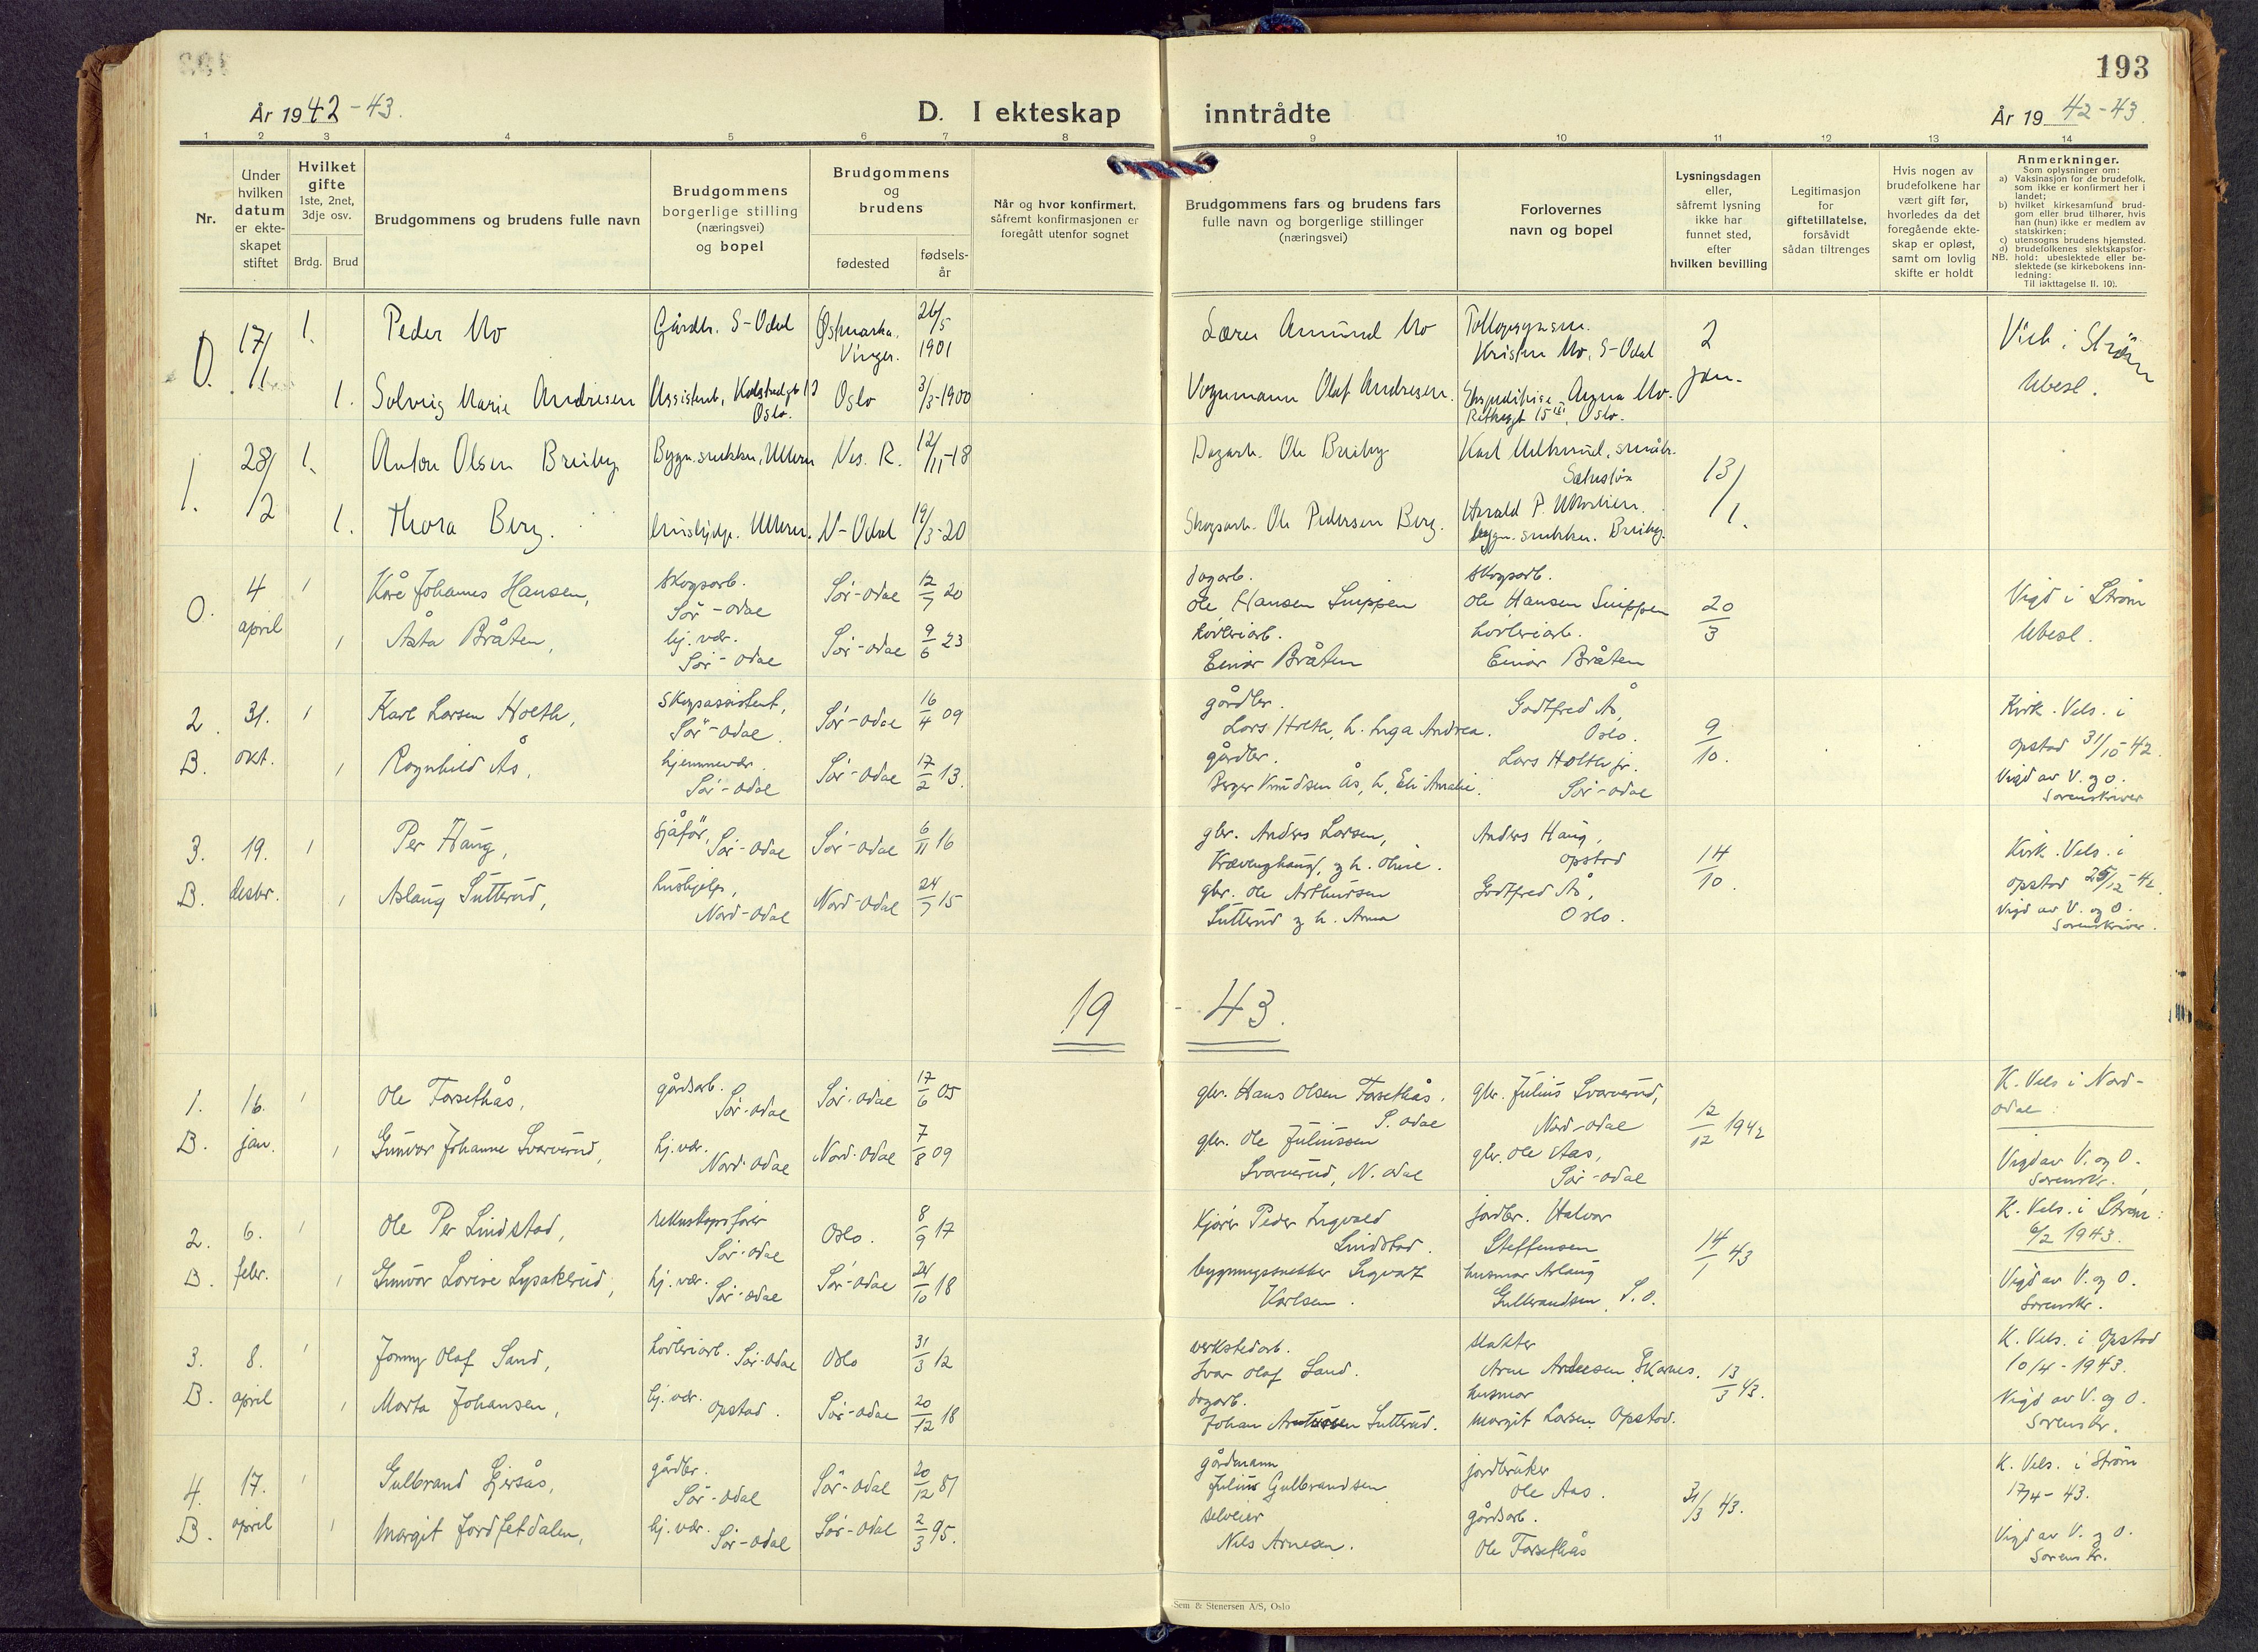 193
År 1942-43.
D. I ekteskap inntrådte
År 1942-43.
1 2 3 4 5 6 7 8 9 10 11 12 13 14
Nr.
Under hvilken datum er ekteskapet stiftet
Hvilket gifte 1ste, 2net, 3dje osv.
Brdg. Brud
Brudgommens og brudens fulle navn
Brudgommens borgerlige stilling (næringsvei) og bopel
Brudgommens og brudens
fødested
fødselsår
Når og hvor konfirmert, såfremt konfirmasjonen er foregått utenfor sognet
Brudgommens fars og brudens fars fulle navn og borgerlige stillinger (næringsvei)
Forlovernes navn og bopel
Lysningsdagen eller, såfremt lysning ikke har funnet sted, efter hvilken bevilling
Legitimasjon for giftetillatelse, forsåvidt sådan tiltrenges
Hvis nogen av brudefolkene har vært gift før, hvorledes da det foregående ekteskap er opløst, samt om lovlig skifte er holdt
Anmerkninger.
Som oplysninger om:
a) Vaksinasjon for de brudefolk, som ikke er konfirmert her i landet;
b) hvilket kirkesamfund brudgom eller brud tilhører, hvis han (hun) ikke er medlem av statskirken;
c) utensogns brudens hjemsted.
d) brudefolkenes slektskapsforhold: ubeslektede eller beslektede (se kirkebokens innledning:
NB. Til iakttagelse II. 10).
0. 17/1 1. Peder Mo Gårdbr. S-Odal Østmarka. Vinger. 26/5 1901 Lærer Amund Mo Kristen Mo, S-Odal 2 jan. Viet i Strøm
1. Solveig Marie Andresen Assistent, Oslo. Oslo 3/3-1900 Vognmann Olaf Andresen. Anna Mo. Oslo. Ubesl.
1. 28/2 1. Anton Olsen Breiby Bygn.snekker, Ullern Ves. R. 12/11-18 Dagarb. Ole Breiby Karl småbr. 13/1.
1. Thora Berg. Ullern. N-Odal 19/3-20 Skogsarb. Ole Pedersen Berg. Harald P. bygn.snekker. Breiby.
0. 4 april 1 Kåre Johannes Hansen, skogsarb. Sør-Odal Sør-Odal 12/7 20 dagarb. Ole Hansen Snippen skogsarb. Ole Hansen Snippen 20/3 Vigd i Strøm
1 Åsta Bråten, hj.vær. Sør-Odal Sør-Odal 9/6 23 høvleriarb. Einar Bråten høvleriarb. Einar Bråten Ubesl.
2. B. 31. okt. 1 Karl Larsen Holth, skogsassistent, Sør-Odal. Sør-Odal 16/4 09 gårdbr. Lars Holth, h. Inga Andrea. Godtfred Ås, Oslo. 9/10. Kirk. Vels. i Opstad 31/10-42.
1 Ragnhild Ås, hjemmevær. Sør-Odal Sør-Odal 17/2 13. gårdbr. Berger Knudsen Ås, h. Eli Amalie. Lars Holth jr. Sør-Odal Vigd av V. og O. Sorenskriver
3. B. 19. desbr. 1 Per Haug, sjåfør, Sør-Odal Sør-Odal 6/11 16 gbr. Anders Larsen, og h. Oline. Anders Haug, Opstad 14/10. Kirk. Vels. i Opstad 25/12-42.
1 Aslaug Sutterud, hushjelp, Nord-Odal Nord-Odal 24/7 15 gbr. Ole Arthursen Sutterud og h. Anna Godtfred Ås, Oslo. Vigd av V. og O. Sorenskriver.
19 - 43.
1. B. 16. jan. 1 Ole Forsethås, gårdsarb. Sør-Odal Sør-Odal 17/6 05 gbr. Hans Olsen Forsethås. S. Odal gbr. Julius Svarverud, Nord-Odal 12/12 1942 K. Vels i Nord-Odal.
1 Gunvor Johanne Svarverud, hj.vær. Nord-Odal Nord-Odal 7/8 09 gbr. Ole Juliussen Svarverud, N. Odal gbr. Ole Aas, Sør-Odal Vigd av V. og O. Sorenskr.
2. B. 6. febr. 1 Ole Per Lindstad, rekneskapsfører Sør-Odal Oslo. 8/9 17 kjører Peder Ingvald Lindstad. jordbr. Halvor Steffensen 14/1 43 K. Vels. i Strøm: 6/2 1943.
1 Gunvor Lovise Lysaklerud, hj.vær. Sør-Odal Sør-Odal 24/10 18 bygningssnekker Sigvart Karlsen. husmor Aslaug Gulbrandsen, S.O. Vigd av V. og O. Sorenskr.
3. B. 8. april 1 Jonny Olaf Sand, høvleriarb. Sør-Odal Oslo 31/3 12 verkstedarb. Ivar Olaf Sand. slakter Arne Andresen Skarnes. 13/3 43. K. Vels. i Opstad 10/4-1943.
1 Marta Johansen, hj.vær. Opstad. Sør-Odal 20/12 18 dagarb. Johan Sutterud. husmor Margit Larsen Opstad. Vigd av V. og O. Sorenskr.
4. B. 17. april 1 Gulbrand Gjersås, gårdbr. Sør-Odal Sør-Odal 20/12 81 gårdmann Julius Gulbrandsen jordbruker Ole Aas. 31/3 43. K. Vels. i Strøm 17/4-43.
1 Margit Jordfetdalen, hj.vær. Sør-Odal Sør-Odal 2/3 95. selveier Nils Arnesen. gårdsarb. Ole Forsethås Vigd av V. og O. Sorenskr.
Sem & Stenersen A/S, Oslo